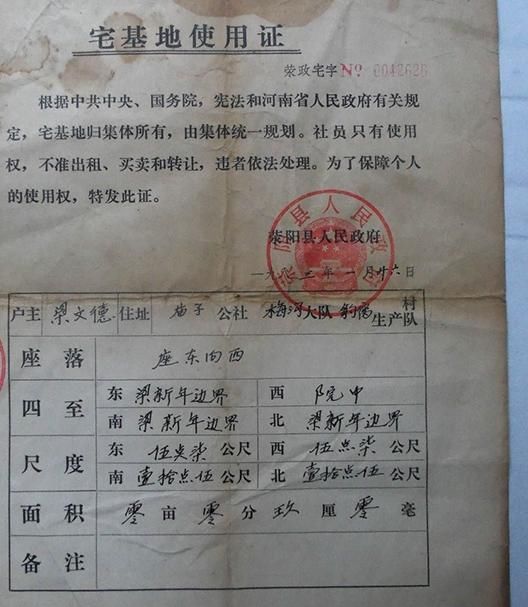 宅基地使用证
荥政宅字 № 0042626
根据中共中央、国务院，宪法和河南省人民政府有关规
定，宅基地归集体所有，由集体统一规划。社员只有使用
权，不准出租、买卖和转让，违者依法处理。为了保障个人
的使用权，特发此证。
荥阳县人民政府
荥阳县人民政府
一月十六日
户主 梁文德 住址 庙子 公社 梅河大队 村
生产队
座落 座东向西
四至 东 梁新年边界 西 院中
南 梁新年边界 北 梁新年边界
尺度 东 伍点柒 公尺 西 伍点柒 公尺
南 壹拾点伍 公尺 北 壹拾点伍 公尺
面积 零 亩 零 分 玖 厘 零 毫
备注